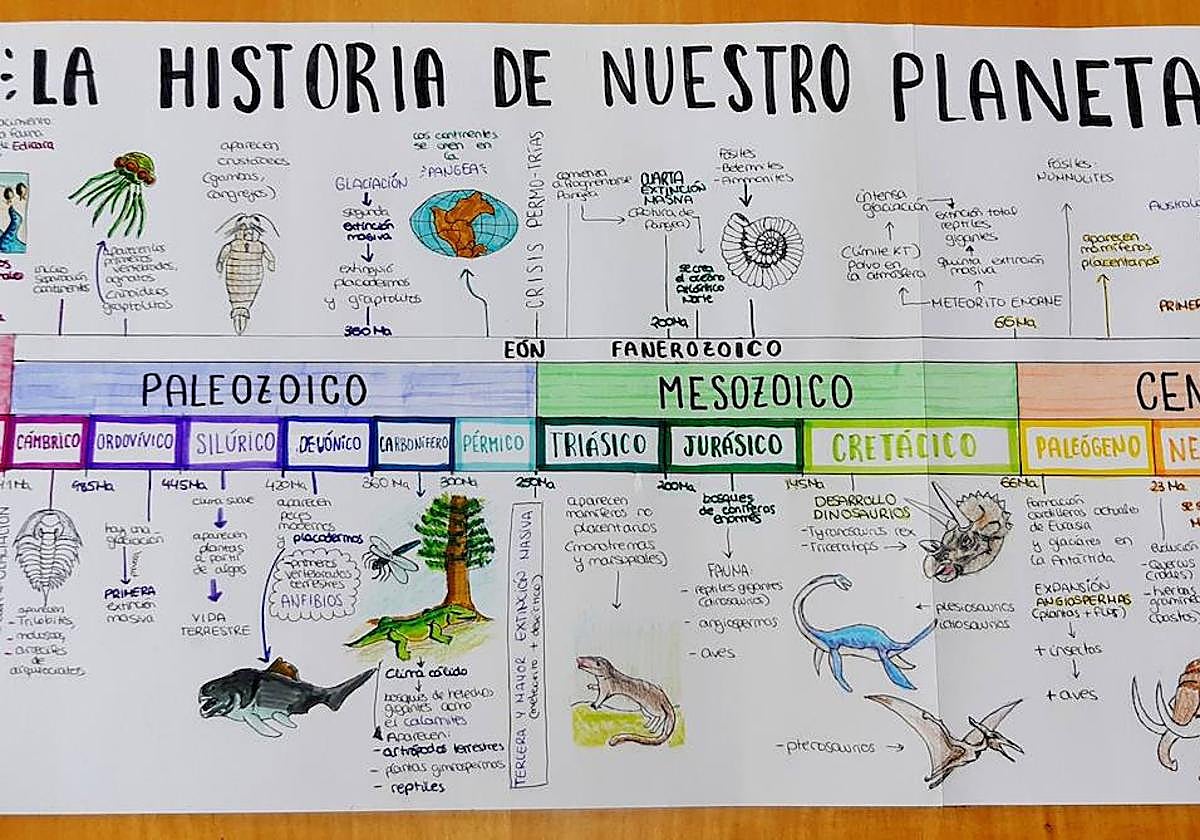 LA HISTORIA DE NUESTRO PLANETA
Edicara
inicio
continentes
aparecen los
primeros
vertebrados,
agnatos
crinoideos
graptolitos
aparecen
crustáceos
(gambas,
cangrejos)
GLACIACIÓN
segunda
extinción
masiva
extinguir
placodermos
y graptolitos
360 Ma
Los continentes
se unen en
la
PANGEA
CRISIS PERMO-TRIAS
comienza
a fragmentarse
Pangea
CUARTA
EXTINCIÓN
MASIVA
(Rotura de
Pangea)
se crea
el océano
Atlántico
Norte
200Ma
Fósiles
-Belemnites
-Ammonites
intensa
glaciación
(Límite KT)
Polvo en
la atmósfera
extinción total
reptiles
gigantes
quinta extinción
masiva
METEORITO ENORME
66Ma
FÓSILES:
NUMMULITES
aparecen
mamíferos
placentarios
EÓN FANEROZOICO
PALEOZOICO
MESOZOICO
CEN
CÁMBRICO
ORDOVÍVICO
SILÚRICO
DEVÓNICO
CARBONÍFERO
PÉRMICO
TRIÁSICO
JURÁSICO
CRETÁCICO
PALEÓGENO
NE
485Ma
445Ma
420Ma
360 Ma
300Ma
250Ma
200Ma
145Ma
66Ma
23 Ma
aparecen
- Trilobites,
- moluscos,
- arrecifes
de
arqueociatos
hay una
glaciación
PRIMERA
extinción
masiva
clima suave
aparecen
plantas
a partir
de algas
VIDA
TERRESTRE
aparecen
peces
modernos
y placodermos
-primeros
vertebrados
terrestres
ANFIBIOS
Clima cálido
bosques de helechos
gigantes como
el calamites
Aparecen:
- artrópodos terrestres
- plantas gimnospermas
- reptiles
TERCERA Y MAYOR EXTINCIÓN MASIVA
aparecen
mamíferos no
placentarios
(monotremas
y marsupiales)
bosques
de coníferas
enormes
FAUNA:
- reptiles gigantes
(dinosaurios)
- angiospermas
- aves
DESARROLLO
DINOSAURIOS
-Tyranosaurus rex
-Triceratops
plesiosaurios
ictiosaurios
-pterosaurios
Formación
cordilleras actuales
de Eurasia
y glaciares en
la Antártida
EXPANSIÓN
ANGIOSPERMAS
(plantas + flor)
+ insectos
+ aves